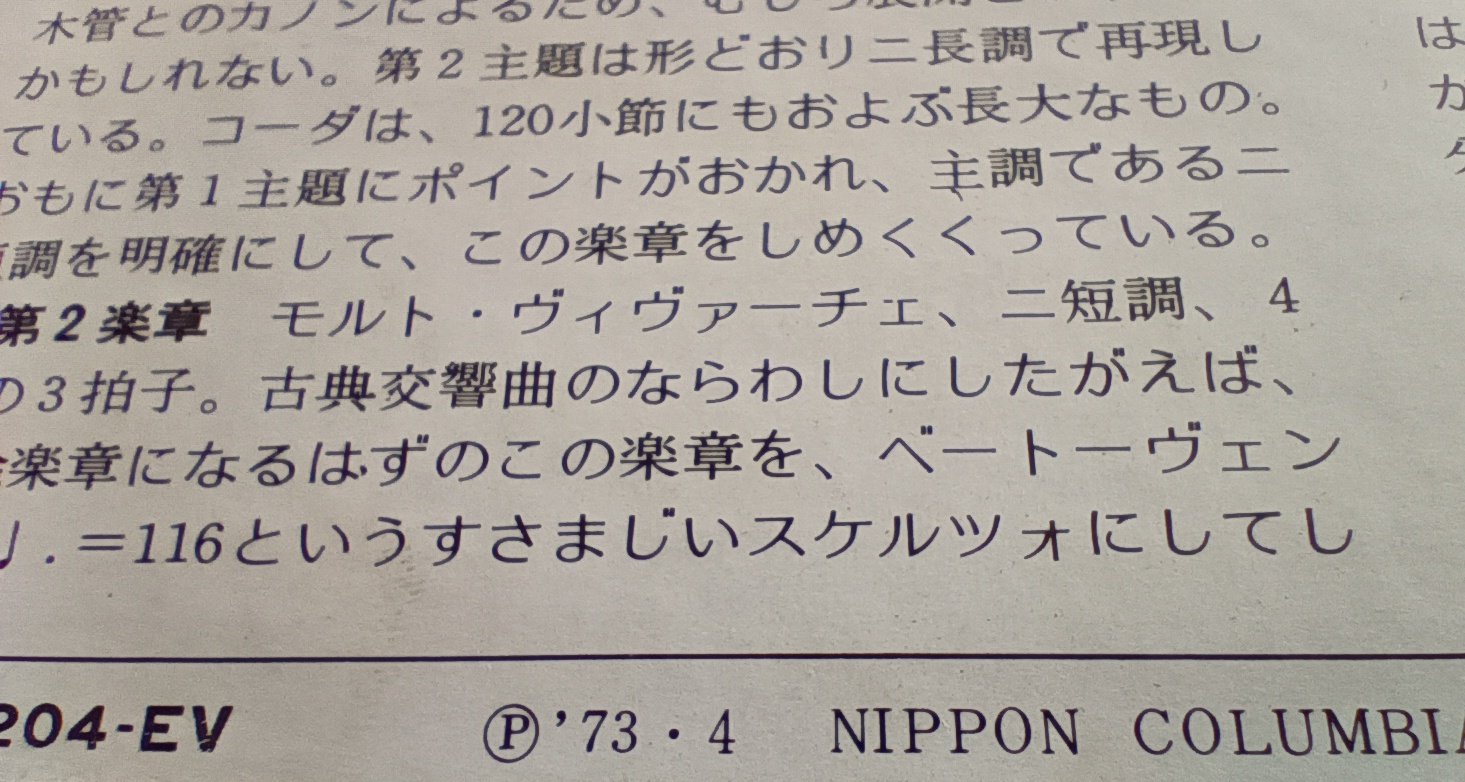 木管とのカノンによるため、むしろ展開
かもしれない。第2主題は形どおりニ長調で再現し
ている。コーダは、120小節にもおよぶ長大なもの。
おもに第1主題にポイントがおかれ、主調であるニ
短調を明確にして、この楽章をしめくくっている。
第2楽章 モルト・ヴィヴァーチェ、ニ短調、4
の3拍子。古典交響曲のならわしにしたがえば、
楽章になるはずのこの楽章を、ベートーヴェン
♩.＝116というすさまじいスケルツォにしてし
は
か
204-EV Ⓟ'73・4 NIPPON COLUMBIA